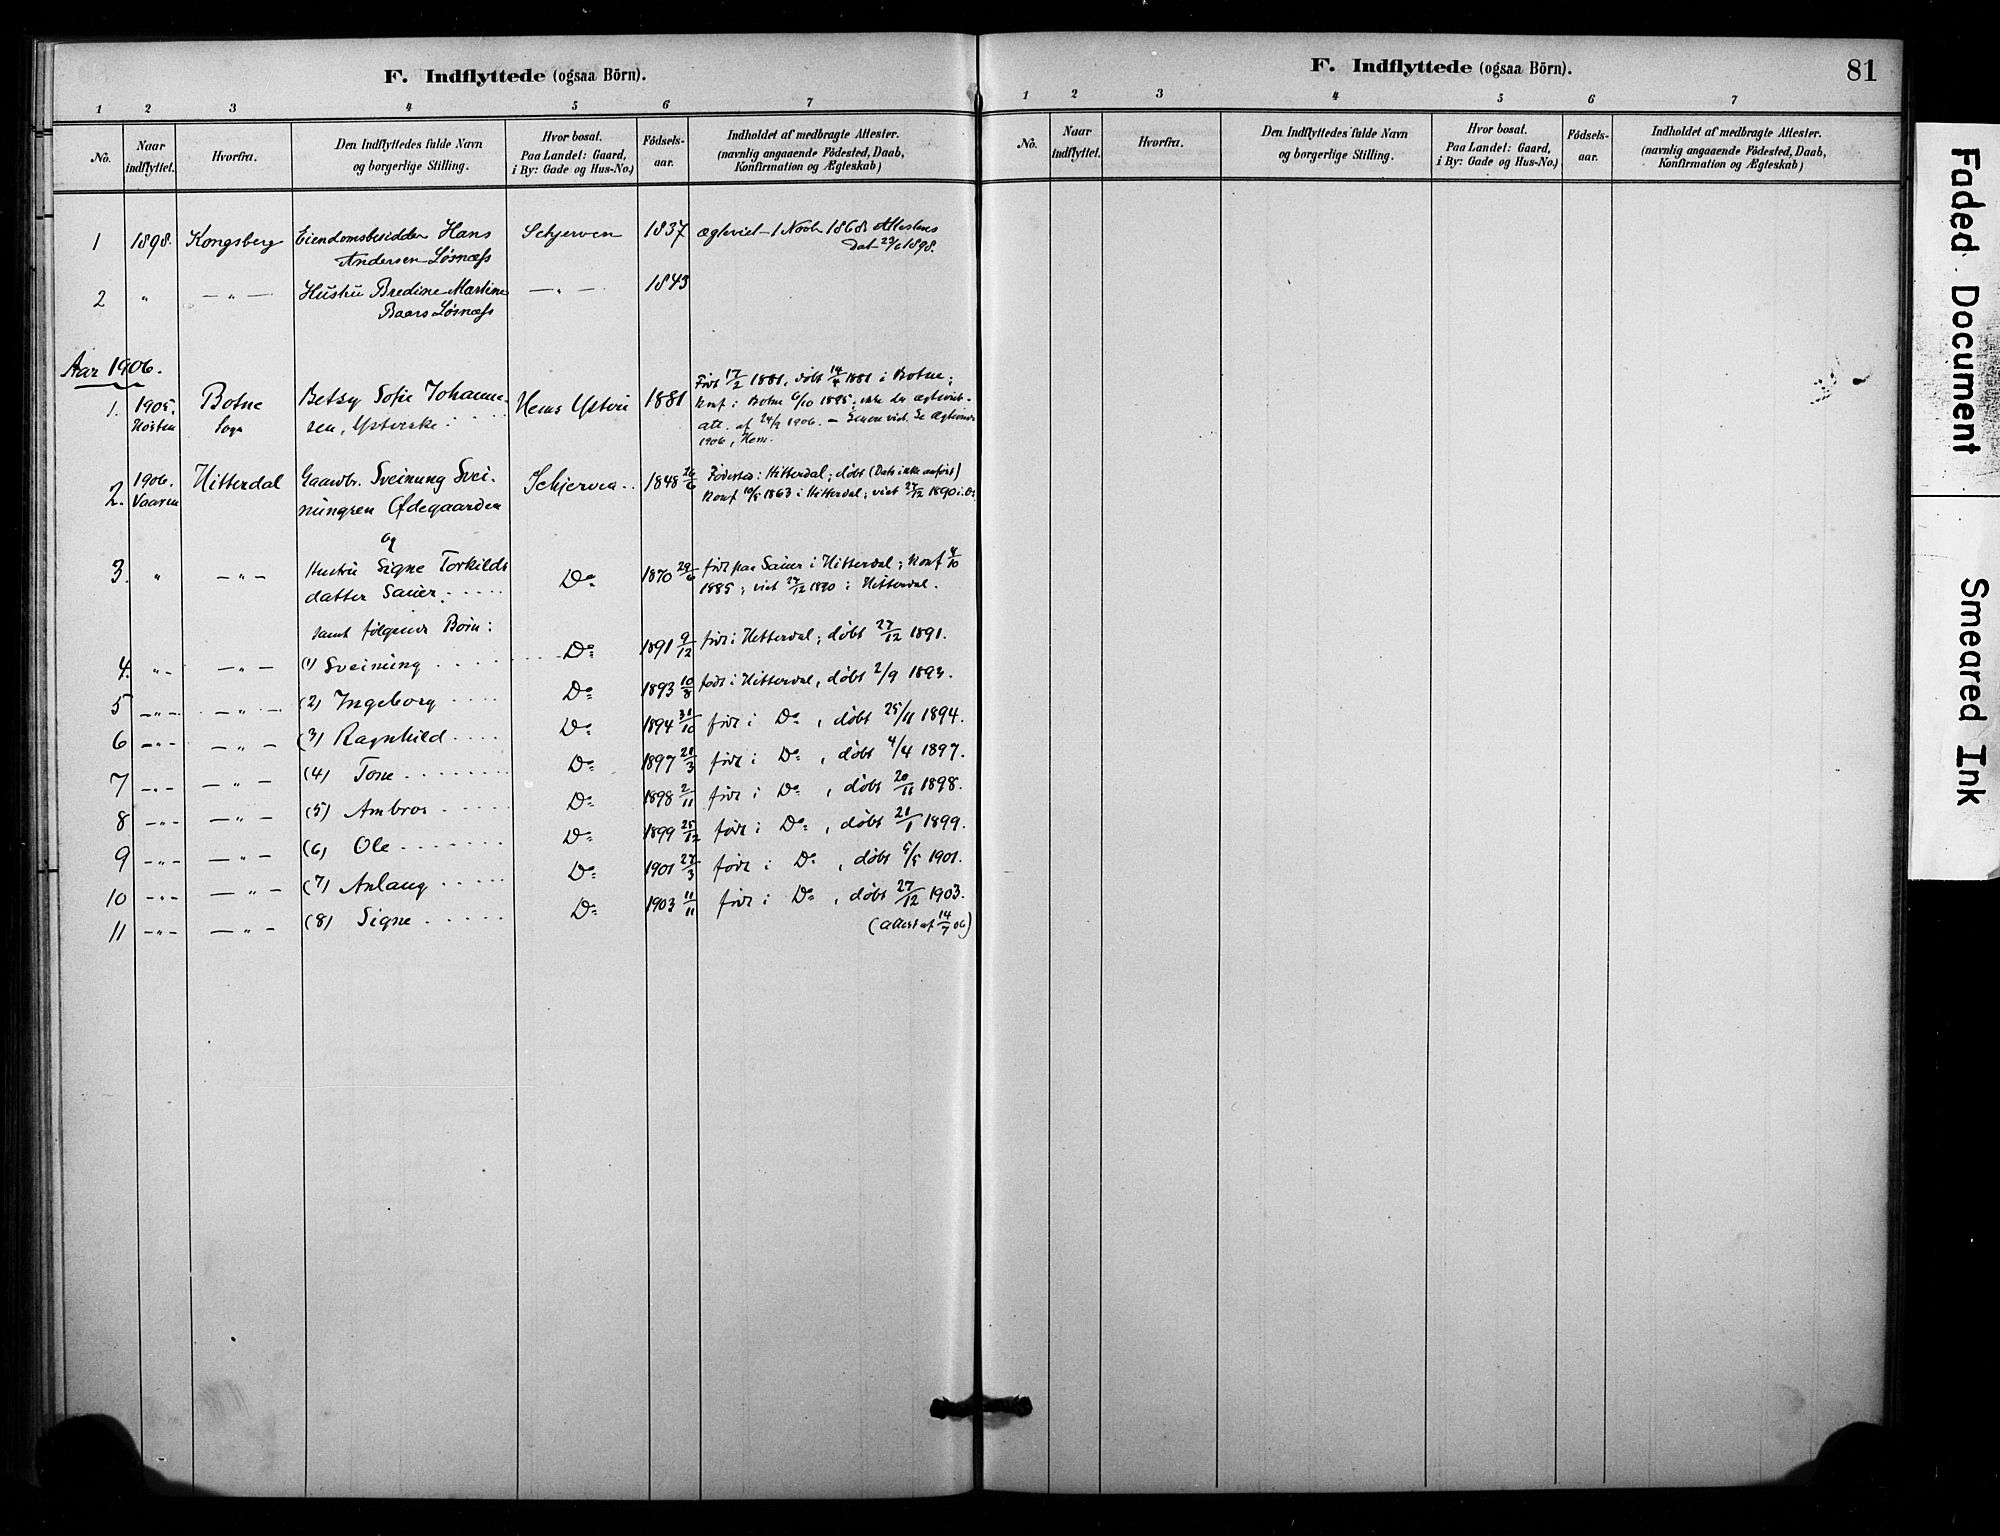 F. Indflyttede (ogsaa Börn).
1 2 3 4 5 6 7
No. Naar indflyttet. Hvorfra. Den Indflyttedes fulde Navn og borgerlige Stilling. Hvor bosat. Paa Landet: Gaard, i By: Gade og Hus-No.) Födsels-aar. Indholdet af medbragte Attester. (navnlig angaaende Födested, Daab, Konfirmation og Ægteskab)
1 1898. Kongsberg Eiendomsbesidder Hans Schjerven 1837 ægteviet 1 Novb 1868 Attestens
Andersen Løsnæss dat 23/6 1898.
2 " — " — Hustru Bredine Martine — " — 1843
Baars Løsnæss
Aar 1906.
1. 1905. Høsten Botne Sogn Betsy Sofie Johanne- Hems Ysteri 1881 Født 17/2 1881, døbt 14/4 1881 i Botne;
sen, Ysterske Konf i Botne 6/10 1895; ikke før ægteviet.
att. af 24/9 1906. — Senere viet. Se ægteviede
1906, Hem.
2. 1906. Vaaren Hitterdal Gaardbr. Sveinung Svei- Schjerven 1848 26/6 Fødested: Hitterdal; døbt (Dato ikke anført)
nungsen Ødegaarden Konf 10/5 1863 i Hitterdal; viet 27/12 1890
og
3. " — " — Hustru Signe Torkilds Do 1870 29/6 født paa Sauer i Hitterdal; Konf 4/10
datter Sauer. 1885; viet 27/12 1890 i Hitterdal.
samt følgende Børn:
4. " — " — (1) Sveinung Do 1891 9/12 født i Hitterdal; døbt 27/12 1891.
5 — " — — " — (2) Ingeborg Do 1893 10/8 født i Hitterdal, døbt 2/9 1893.
6 — " — — " — (3) Ragnhild Do 1894 31/10 født i Do, døbt 25/11 1894.
7 — " — — " — (4) Tone Do 1897 21/3 født i Do, døbt 4/4 1897.
8 — " — — " — (5) Ambros Do 1898 2/11 født i Do, døbt 20/11 1898.
9 — " — — " — (6) Ole Do 1899 25/12 født i Do, døbt 21/1 1899.
10 — " — — " — (7) Aslaug Do 1901 27/3 født i Do, døbt 5/5 1901.
11 — " — — " — (8) Signe Do 1903 11/11 født i Do, døbt 27/12 1903.
(attest af 14/7 06)
F. Indflyttede (ogsaa Börn). 81
1 2 3 4 5 6 7
No. Naar indflyttet. Hvorfra. Den Indflyttedes fulde Navn og borgerlige Stilling. Hvor bosat. Paa Landet: Gaard, i By: Gade og Hus-No.) Födsels-aar. Indholdet af medbragte Attester. (navnlig angaaende Födested, Daab, Konfirmation og Ægteskab)
Faded Document
Smeared Ink